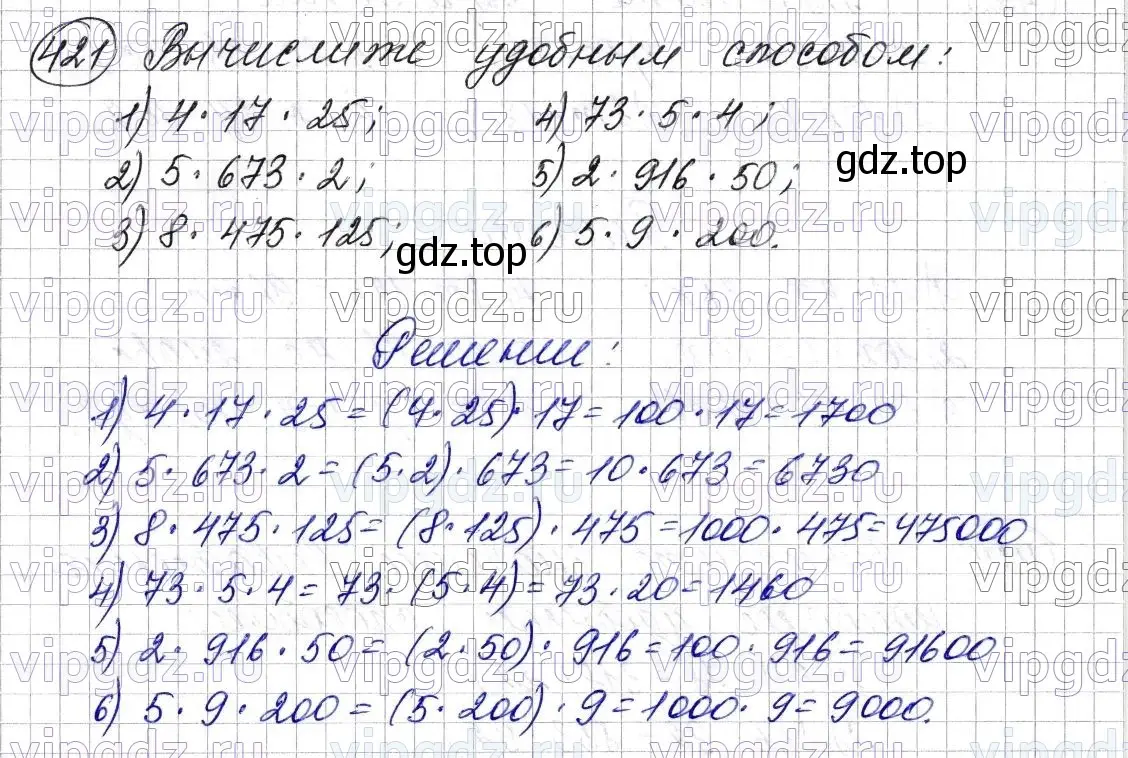 421 Вычислите удобным способом:
1) 4·17·25; 4) 73·5·4;
2) 5·673·2; 5) 2·916·50;
gdz.top
3) 8·475·125; 6) 5·9·200.
gdz.top
Решении:
1) 4·17·25=(4·25)·17=100·17=1700
2) 5·673·2=(5·2)·673=10·673=6730
3) 8·475·125=(8·125)·475=1000·475=475000
4) 73·5·4=73·(5·4)=73·20=1460
5) 2·916·50=(2·50)·916=100·916=91600
6) 5·9·200=(5·200)·9=1000·9=9000.
vipgdz.ru